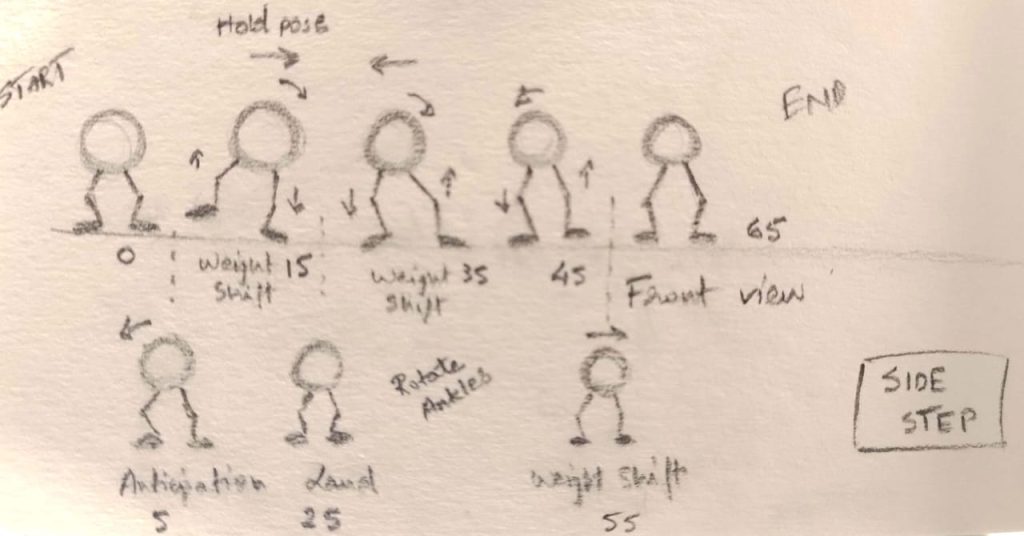 Hold pose
START
END
0
Weight 15
Shift
Weight 35
Shift
45
65
Front view
Rotate
Ankles
SIDE
STEP
Anticipation
Land
Weight Shift
5
25
55